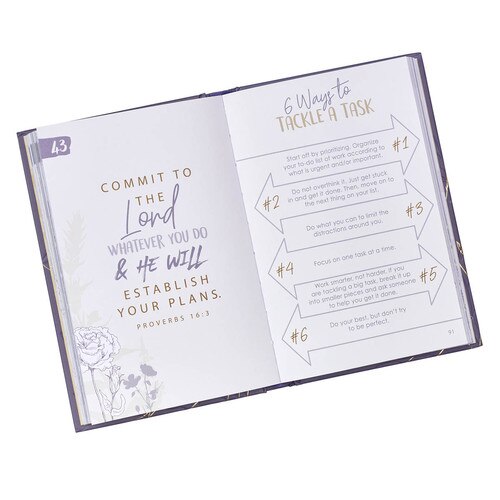 43
COMMIT TO
THE
Lord
WHATEVER YOU DO
& HE WILL
ESTABLISH
YOUR PLANS.
PROVERBS 16:3
6 Ways to
TACKLE A TASK
#1
Start off by prioritizing. Organize
your to-do list of work according to
what is urgent and/or important.
#2
Do not overthink it. Just get stuck
in and get it done. Then, move on to
the next thing on your list.
#3
Do what you can to limit the
distractions around you.
#4
Focus on one task at a time.
#5
Work smarter, not harder. If you
are tackling a big task, break it up
into smaller pieces and ask someone
to help you get it done.
#6
Do your best, but don't try
to be perfect.
91